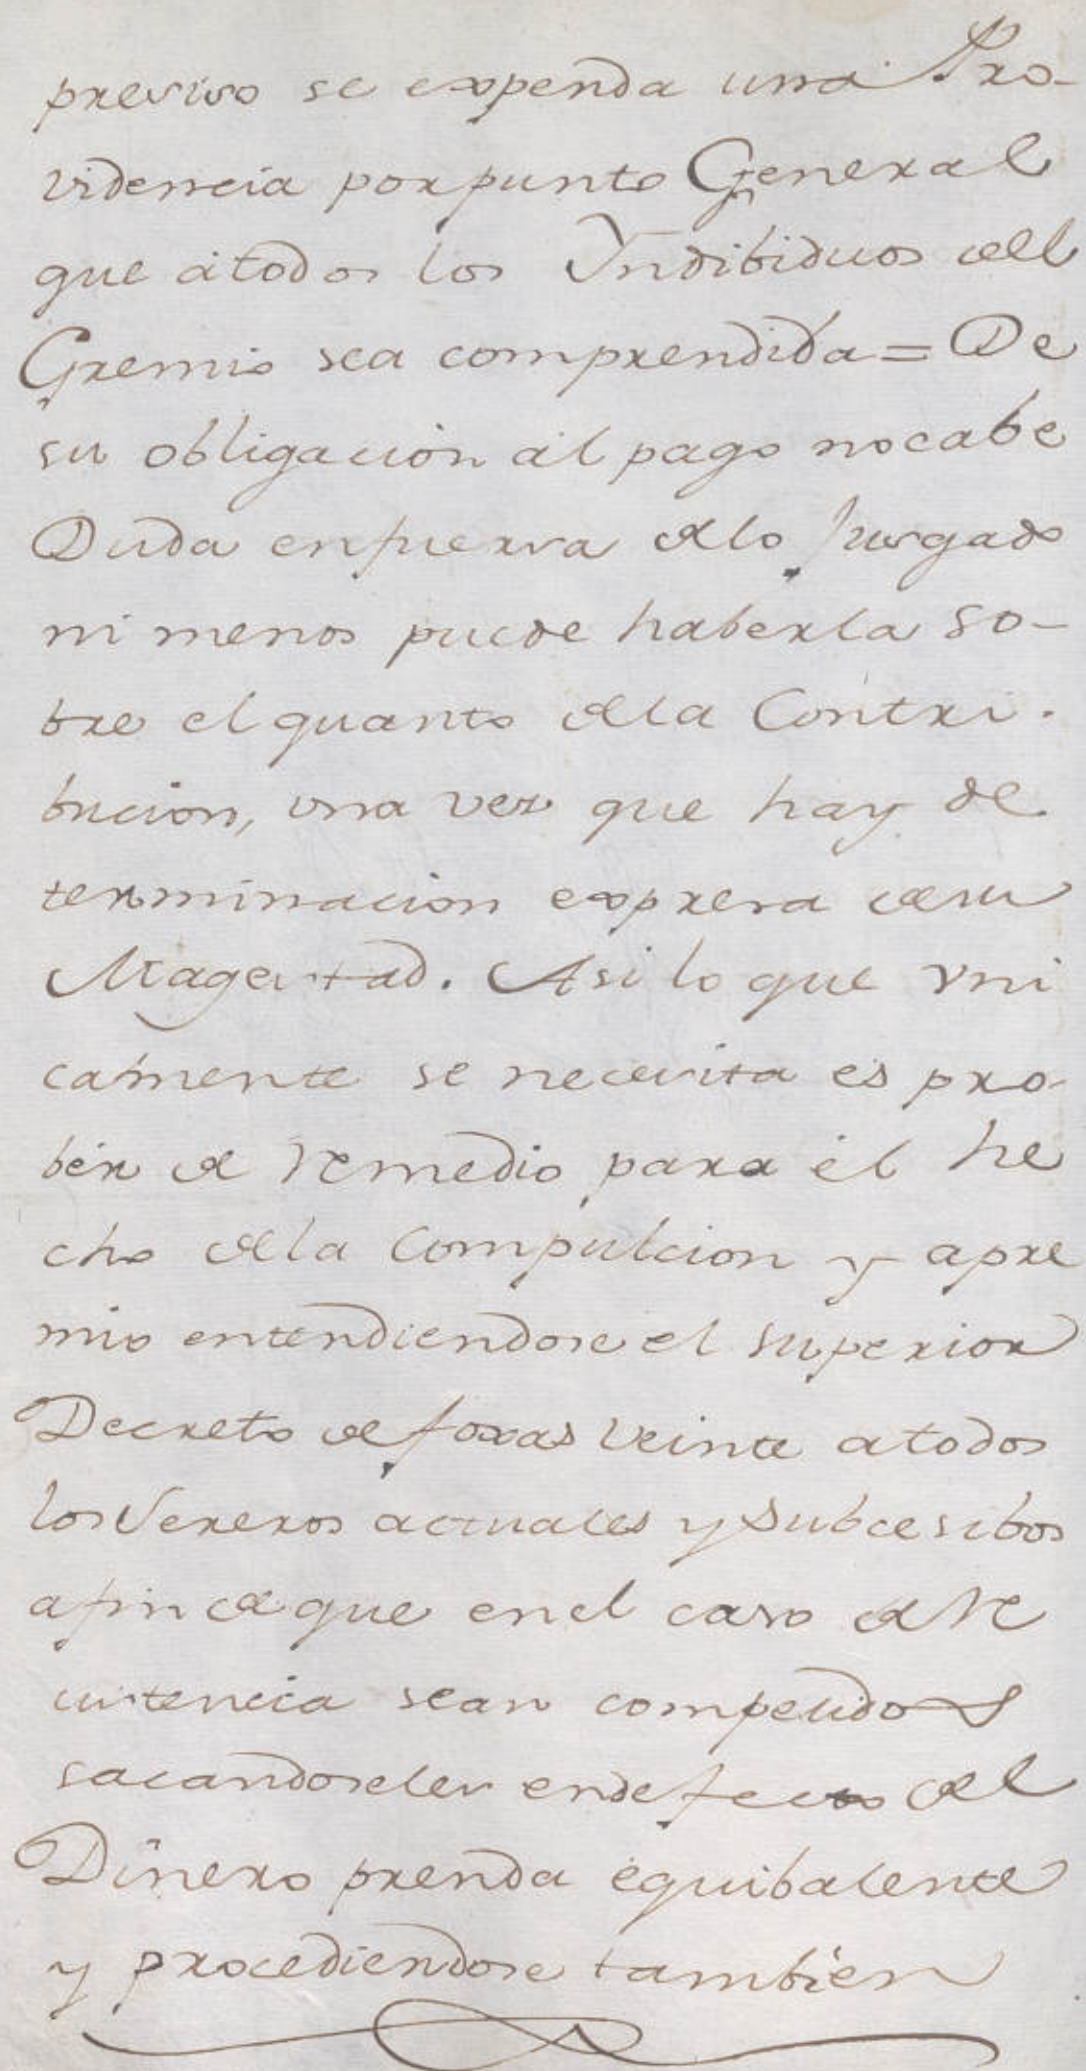 presiso se expenda una Pro-
videncia por punto General
que átodos los Yndibiduos del
Gremio sea comprendida = De
su obligacion al pago no cabe
Duda enfuerza delo Jusgado
ni menos puede haberla so-
bre el quanto dela Contri-
bucion, una vez que hay de
terminacion expresa desu
Magestad. Asi lo que vni
camente se necesita es pro-
bér de remedio para él he
cho dela Compulcion y apre
mio entendiendose el superior
Decreto de foxas veinte atodos
los Vereros actuales y Subcesibos
afin deque enel caso de re
cistencia sean compelidos
sacandoseles endefecto del
Dinero prenda equibalente
y procediendose tambien